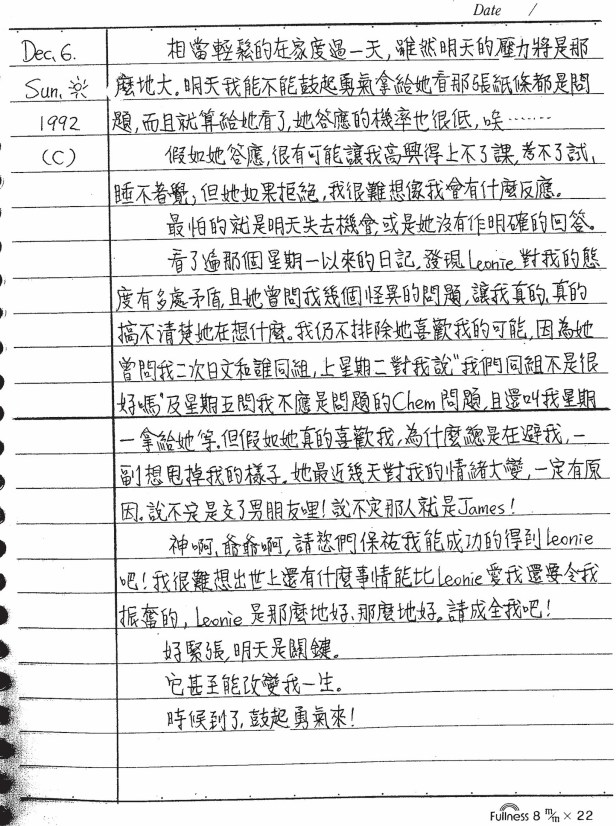 Date /
Dec. 6. 相當輕鬆的在家度過一天,雖然明天的壓力將是那
Sun. 麼地大。明天我能不能鼓起勇氣拿給她看那張紙條都是問
1992 題,而且就算給她看了,她答應的機率也很低,唉……
(C) 假如她答應,很有可能讓我高興得上不了課,考不了試,
睡不著覺;但她如果拒絕,我很難想像我會有什麼反應。
最怕的就是明天失去機會,或是她沒有作明確的回答。
看了遍那個星期一以來的日記,發現Leonie對我的態
度有多處矛盾,且她曾問我幾個怪異的問題,讓我真的,真的
搞不清楚她在想什麼。我仍不排除她喜歡我的可能,因為她
曾問我二次日文和誰同組,上星期二對我說"我們同組不是很
好嗎"及星期五問我不應是問題的Chem問題,且還叫我星期
一拿給她等.但假如她真的喜歡我,為什麼總是在避我,一
副想甩掉我的樣子。她最近幾天對我的情緒大變,一定有原
因.說不定是交了男朋友哩!說不定那人就是James!
神啊,爺爺啊,請您們保祐我能成功的得到Leonie
吧!我很難想出世上還有什麼事情能比Leonie愛我還要令我
振奮的,Leonie是那麼地好、那麼地好。請成全我吧!
好緊張,明天是關鍵。
它甚至能改變我一生。
時候到了,鼓起勇氣來!
Fullness 8 m/m × 22